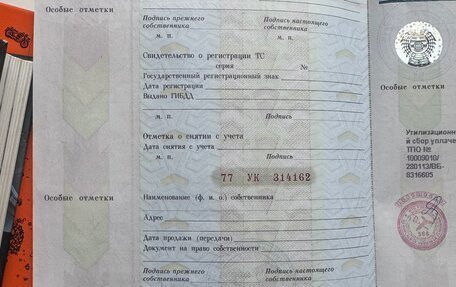 Особые отметки
Подпись прежнего собственника
Подпись настоящего собственника
м. п.
м. п.
Свидетельство о регистрации ТС
серия №
Государственный регистрационный знак
Дата регистрации
Выдано ГИБДД
м. п. Подпись
Отметка о снятии с учета
Дата снятия с учета
м. п. Подпись
77 УК 314162
Особые отметки
Наименование (ф. и. о.) собственника
Адрес
Дата продажи (передачи)
Документ на право собственности
Подпись прежнего собственника
Подпись настоящего собственника
Особые отметки
Утилизационны
й сбор уплаче
ТПО №
10009010/
280113/ВБ-
8316605